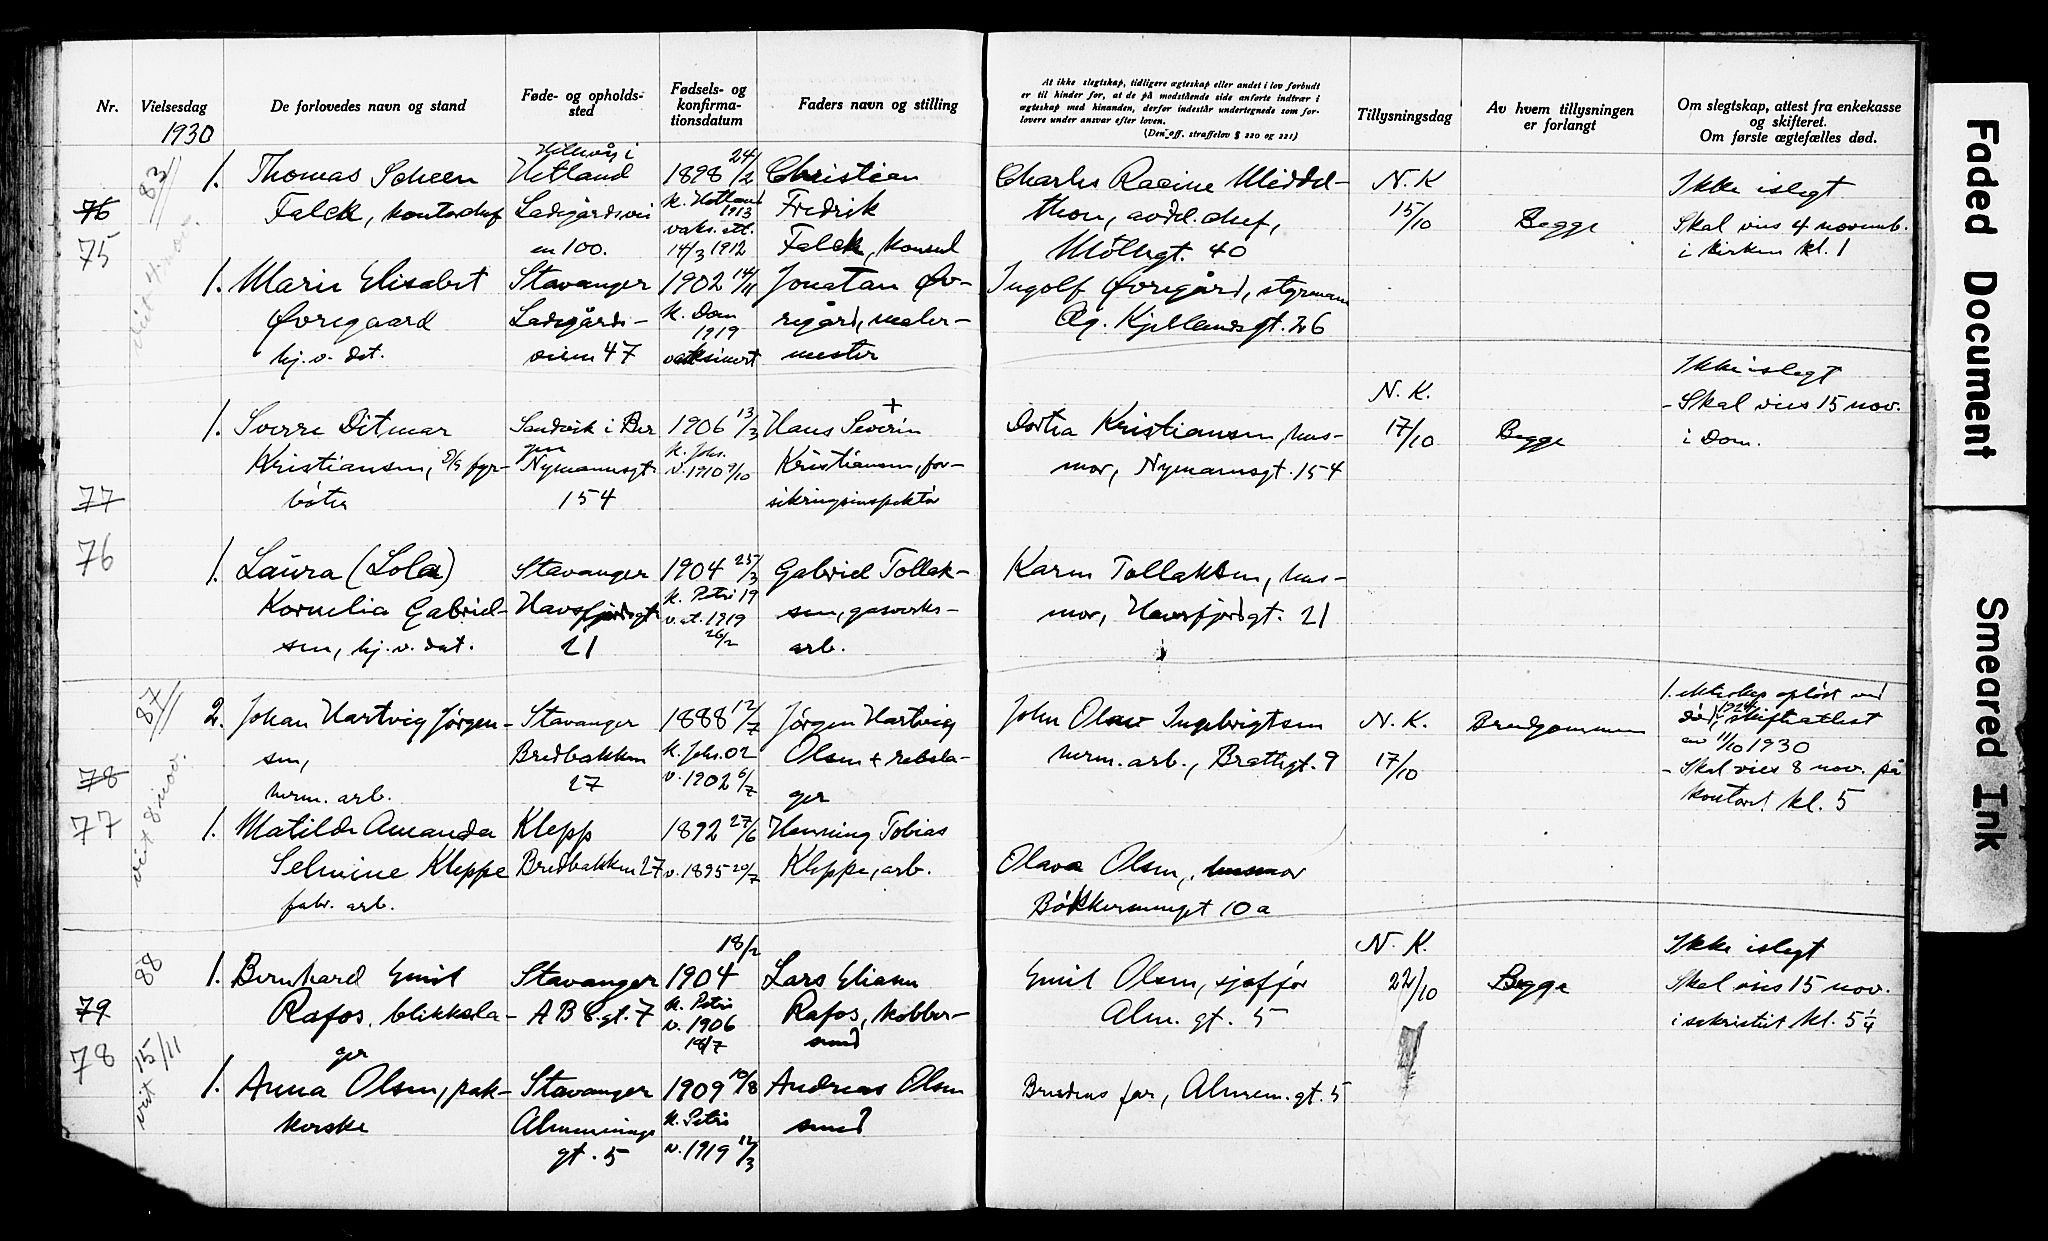 Nr.
Vielsesdag
1930
De forlovedes navn og stand
Føde- og opholds-
sted
Fødsels- og
konfirma-
tionsdatum
Faders navn og stilling
At ikke slegtskap, tidligere ægteskap eller andet i lov forbudt
er til hinder for, at de på modstående side anførte indtrær i
ægteskap med hinanden, derfor indestår undertegnede som for-
lovere under ansvar efter loven.
(Den off. straffelov § 220 og 221)
Tillysningsdag
Av hvem tillysningen
er forlangt
Om slegtskap, attest fra enkekasse
og skifteret.
Om første ægtefælles død.
76
75
83/11
viet 4 nov.
1. Thomas Scheen
Falck, kontorchef
Hetland
Ladegårdsvei
en 100.
1898 24/2
k. Hetland
1913
vaks. att.
14/3 1912
Christian
Fredrik
Falck, konsul
Charles Racine Middel-
thon, avdel. chef,
Møllegt. 40
N. K
15/10
Begge
Ikke i slegt
Skal vies 4 novemb.
i kirken kl. 1
1. Marie Elisabet
Øvregaard
hj. v. det.
Stavanger
Ladegårds-
veien 47
1902 14/11
k. Dom
1919
vaksinert
Jonatan Øv-
regård, maler-
mester
Ingolf Øvregård, styrmann
Ag. Kjellandsgt. 26
77
76
1. Sverre Ditmar
Kristiansen, D/S fyr-
bøter
Sandvik i Ber
gen
Nymannsgt.
154
1906 13/3
k. Johs.
v. 1910 9/10
Hans Severin +
Kristiansen, for-
sikringsinspektør
Dortea Kristiansen, hus-
mor, Nymannsgt. 154
N. K.
17/10
Begge
Ikke i slegt
- Skal vies 15 nov.
i Dom.
1. Laura (Lola)
Kornelia Gabriel-
sen, hj. v. det.
Stavanger
Havsfjordsgt.
21
1904 25/3
k. Petri 19
v. at. 1919
26/2
Gabriel Tollak-
sen, gasverks-
arb.
Karen Tollaksen, hus-
mor, Haversfjordgt. 21
78
77
87/11
viet 8 nov.
2. Johan Hartvig Jørgen-
sen,
herm. arb.
Stavanger
Bredbakken
27
1888 12/7
k. Johs. 02
v. 1902 6/7
Jørgen Hartvig
Olsen + rebsla-
ger
John Olav Ingebrigtsen
herm. arb., Brattegt. 9
N. K.
17/10
Brudgommen
1. ekteskap opløst ved
død 1924, skifteattest
av 11/10 1930
- Skal vies 8 nov. på
kontoret kl. 5
1. Matilde Amanda
Selmine Kleppe
fabr. arb.
Klepp
Bredbakken 27
1892 27/6
v. 1895 20/7
Henning Tobias
Kleppe, arb.
Olava Olsen, husmor
Bøkkermanngt 10 a
79
78
88
viet 15/11
1. Bernhard Emil
Rafos, blikksla-
ger
Stavanger
A B C. gt. 7
18/2
1904
k. Petri
v. 1906
18/7
Lars Eliasen
Rafos, kobber-
smed
Emil Olsen, sjåffør
Alm. gt. 5
N. K.
22/10
Begge
Ikke i slegt
Skal vies 15 nov.
i sakristiet kl. 5 1/4
1. Anna Olsen, pak-
kerske
Stavanger
Almennings
gt. 5
1909 10/8
k. Petri
v. 1919 12/3
Andreas Olsen
smed
Brudens far, Almen. gt. 5
Faded Document
Smeared Ink